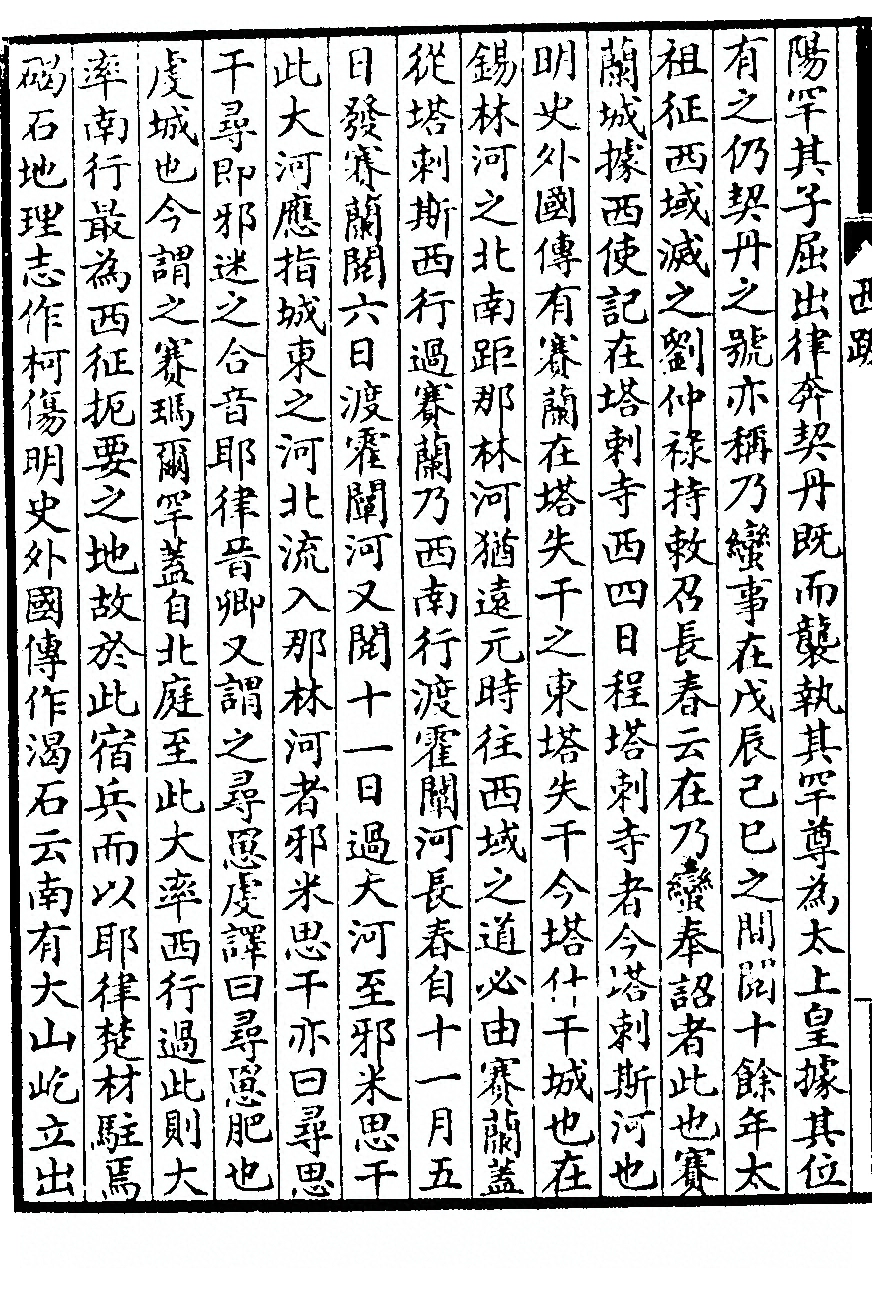 陽罕其子屈出律奔契丹既而襲執其罕尊為太上皇據其位
有之仍契丹之號亦稱乃蠻事在戊辰己巳之間閱十餘年太
祖征西域滅之劉仲祿持敕召長春云在乃蠻奉詔者此也賽
蘭城據西使記在塔剌寺西四日程塔剌寺者今塔剌斯河也
明史外國傳有賽蘭在塔失干之東塔失干今塔什干城也在
錫林河之北南距那林河猶遠元時往西域之道必由賽蘭蓋
從塔剌斯西行過賽蘭乃西南行渡霍闡河長春自十一月五
日發賽蘭閱六日渡霍闡河又閱十一日過大河至邪米思干
此大河應指城東之河北流入那林河者邪米思干亦曰尋思
干尋即邪迷之合音耶律晉卿又謂之尋罳虔譯曰尋罳肥也
虔城也今謂之賽瑪爾罕蓋自北庭至此大率西行過此則大
率南行最為西征扼要之地故於此宿兵而以耶律楚材駐焉
碣石地理志作柯傷明史外國傳作渴石云南有大山屹立出
西域